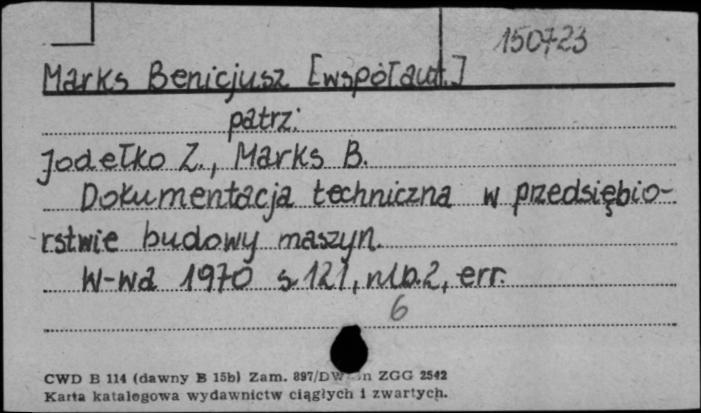 150723
Marks Benicjusz [współaut.]
patrz:
Jodełko Z., Marks B.
Dokumentacja techniczna w przedsiębio-
rstwie budowy maszyn.
W-wa 1970 s. 121, nlb. 2, err.
6
CWD B 114 (dawny B 15b) Zam. 897/DW ZGG 2542
Karta katalogowa wydawnictw ciągłych i zwartych.